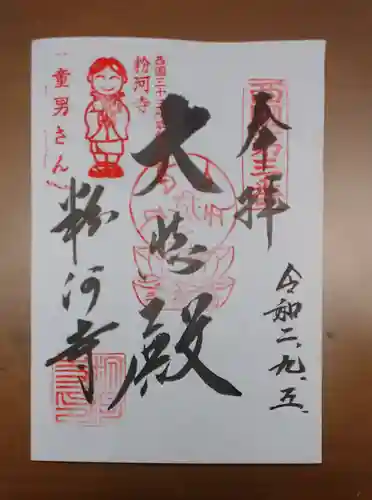 奉拝
令和二、九、五、
大悲殿
西国三十三
粉河寺
童男さん
粉河寺